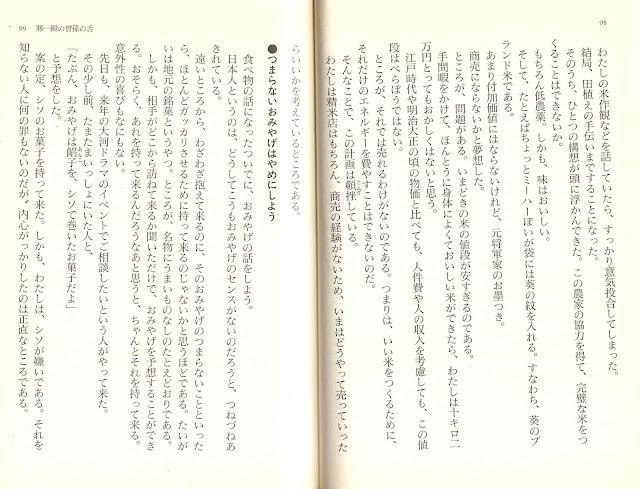 98
わたしの米作観などを話していたら、すっかり意気投合してしまった。
結局、田植えの手伝いまですることになった。
そのうち、ひとつの構想が頭に浮かんできた。この農家の協力を得て、完璧な米をつ
くることはできないか。
もちろん低農薬。しかも、味はおいしい。
そして、たとえばちょっとミーハーぽいが袋には葵の紋を入れる。すなわち、葵のブ
ランド米である。
あまり付加価値にはならないけれど、元将軍家のお墨つき。
商売にならないかと夢想した。
ところが、問題がある。いまどきの米の値段が安すぎるのである。
手間暇をかけて、ほんとうに身体によくておいしい米ができたら、わたしは十キロ二
万円とってもおかしくはないと思う。
江戸時代や明治大正の頃の物価と比べても、人件費や人の収入を考慮しても、この値
段はべらぼうではない。
ところが、それでは売れるわけがないのである。つまりは、いい米をつくるために、
それだけのエネルギーを費やすことはできないのだ。
そんなことで、この計画は頓挫している。
わたしは精米店はもちろん、商売の経験がないため、いまはどうやって売っていった
99 豚一殿の曾孫の舌
らいいかを考えているところである。
●つまらないおみやげはやめにしよう
食べ物の話になったついでに、おみやげの話をしよう。
日本人というのは、どうしてこうもおみやげのセンスがないのだろうと、つねづねあ
きれている。
遠いところから、わざわざ抱えて来るのに、そのおみやげのつまらないことといった
ら、ほとんどガッカリさせるために持って来るのじゃないかと思うほどである。たいが
いは地元の銘菓というやつ。ところが、名物にうまいものなしのたとえどおりである。
しかも、相手がどこから訪ねて来るか聞いただけで、おみやげを予想することができ
る。おそらく、あれを持って来るんだろうなあと思うと、ちゃんとそれを持って来る。
意外性の喜びもなにもない。
先日も、来年の大河ドラマのイベントでご相談したいという人がやって来た。
その少し前、たまたまいっしょにいた人と、
「たぶん、おみやげは餡子を、シソで巻いたお菓子だよ」
と予想をした。
案の定、シソのお菓子を持って来た。しかも、わたしは、シソが嫌いである。それを
知らない人に何の罪もないのだが、内心がっかりしたのは正直なところである。